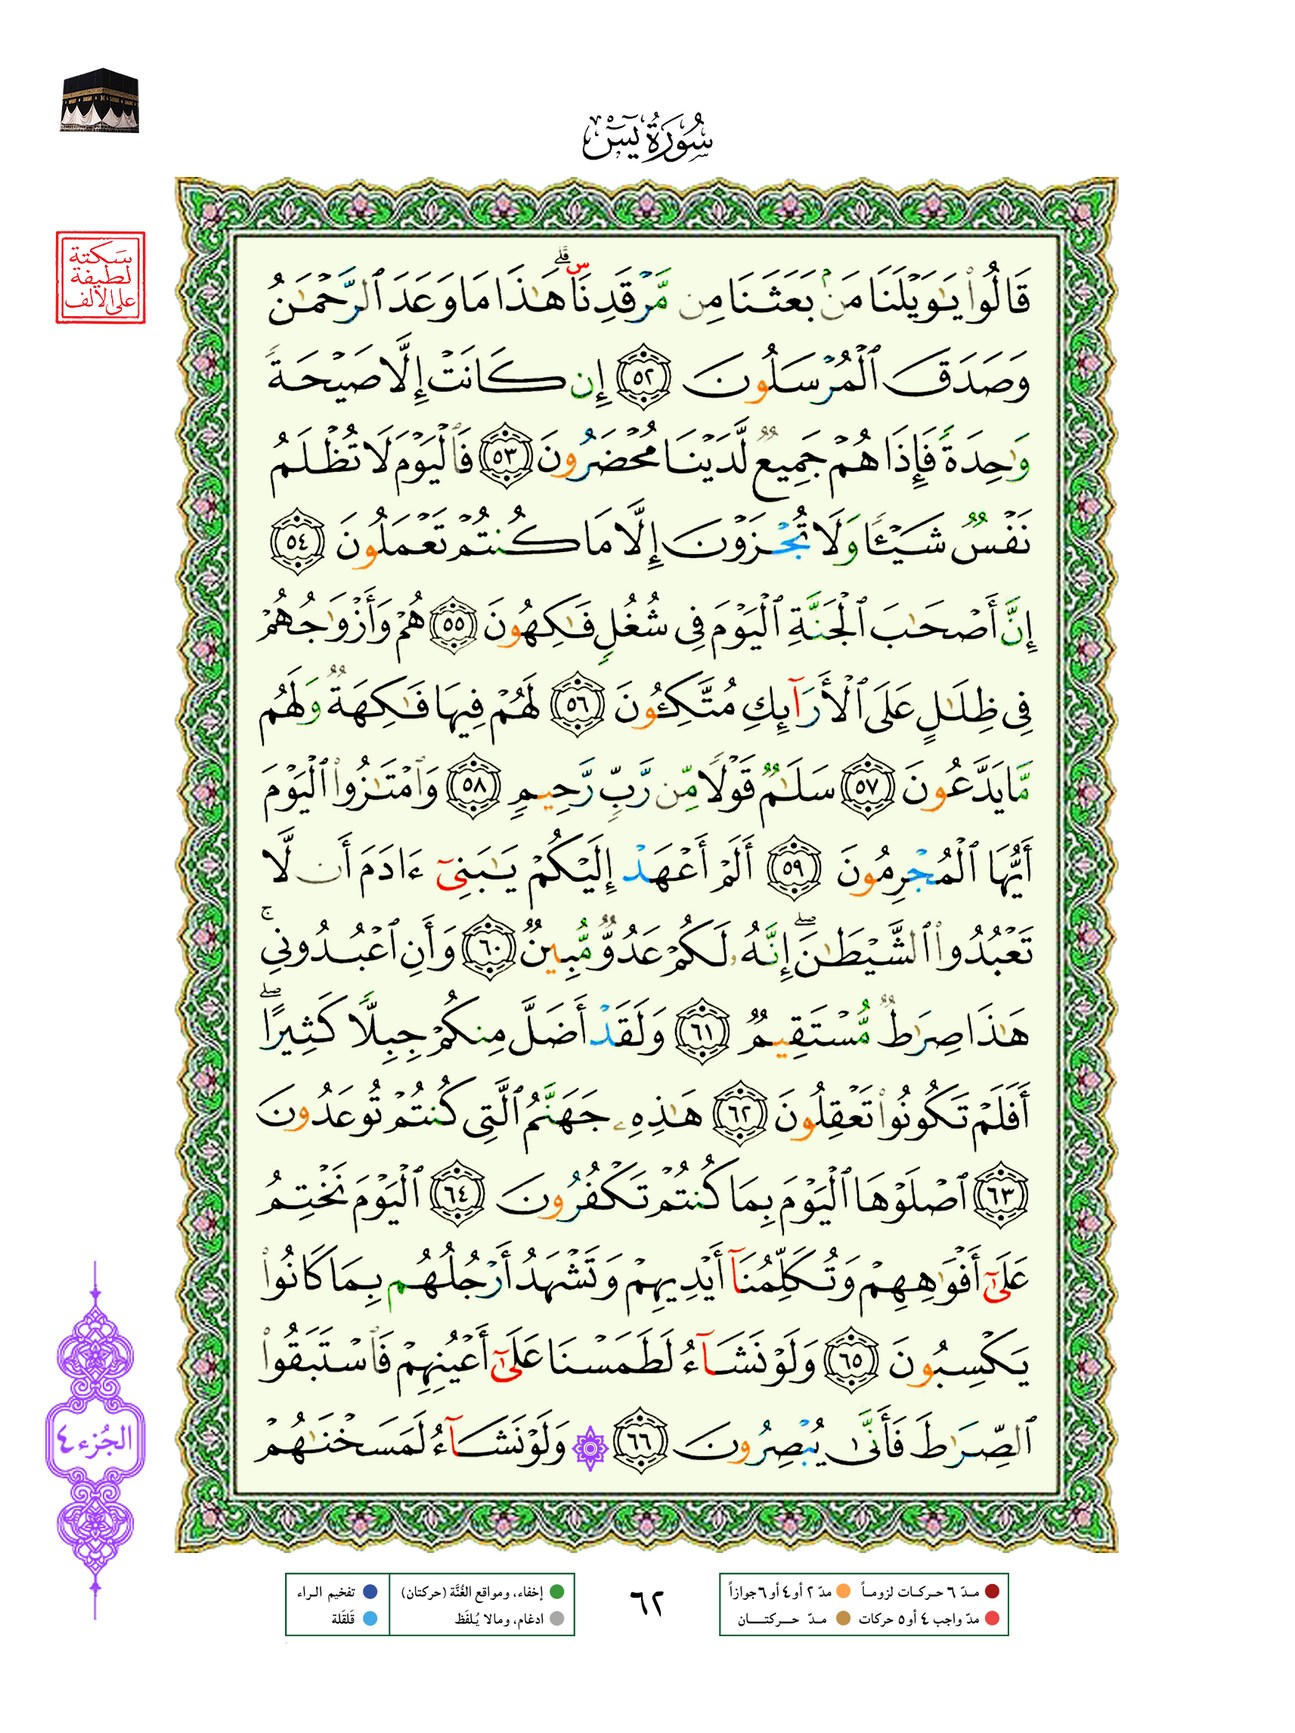 سُورَةُ يسٓ
سَكتة
لطيفة
على الألف
قَالُوا۟ يَـٰوَيْلَنَا مَنۢ بَعَثَنَا مِن مَّرْقَدِنَا ۜ ۗ هَـٰذَا مَا وَعَدَ ٱلرَّحْمَـٰنُ
وَصَدَقَ ٱلْمُرْسَلُونَ ٥٢ إِن كَانَتْ إِلَّا صَيْحَةً
وَٰحِدَةً فَإِذَا هُمْ جَمِيعٌ لَّدَيْنَا مُحْضَرُونَ ٥٣ فَٱلْيَوْمَ لَا تُظْلَمُ
نَفْسٌ شَيْـًٔا وَلَا تُجْزَوْنَ إِلَّا مَا كُنتُمْ تَعْمَلُونَ ٥٤
إِنَّ أَصْحَـٰبَ ٱلْجَنَّةِ ٱلْيَوْمَ فِى شُغُلٍ فَـٰكِهُونَ ٥٥ هُمْ وَأَزْوَٰجُهُمْ
فِى ظِلَـٰلٍ عَلَى ٱلْأَرَآئِكِ مُتَّكِـُٔونَ ٥٦ لَهُمْ فِيهَا فَـٰكِهَةٌ وَلَهُم
مَّا يَدَّعُونَ ٥٧ سَلَـٰمٌ قَوْلًا مِّن رَّبٍّ رَّحِيمٍ ٥٨ وَٱمْتَـٰزُوا۟ ٱلْيَوْمَ
أَيُّهَا ٱلْمُجْرِمُونَ ٥٩ أَلَمْ أَعْهَدْ إِلَيْكُمْ يَـٰبَنِىٓ ءَادَمَ أَن لَّا
تَعْبُدُوا۟ ٱلشَّيْطَـٰنَ ۖ إِنَّهُۥ لَكُمْ عَدُوٌّ مُّبِينٌ ٦٠ وَأَنِ ٱعْبُدُونِى ۚ
هَـٰذَا صِرَٰطٌ مُّسْتَقِيمٌ ٦١ وَلَقَدْ أَضَلَّ مِنكُمْ جِبِلًّا كَثِيرًا ۖ
أَفَلَمْ تَكُونُوا۟ تَعْقِلُونَ ٦٢ هَـٰذِهِۦ جَهَنَّمُ ٱلَّتِى كُنتُمْ تُوعَدُونَ
٦٣ ٱصْلَوْهَا ٱلْيَوْمَ بِمَا كُنتُمْ تَكْفُرُونَ ٦٤ ٱلْيَوْمَ نَخْتِمُ
عَلَىٰٓ أَفْوَٰهِهِمْ وَتُكَلِّمُنَآ أَيْدِيهِمْ وَتَشْهَدُ أَرْجُلُهُم بِمَا كَانُوا۟
يَكْسِبُونَ ٦٥ وَلَوْ نَشَآءُ لَطَمَسْنَا عَلَىٰٓ أَعْيُنِهِمْ فَٱسْتَبَقُوا۟
ٱلصِّرَٰطَ فَأَنَّىٰ يُبْصِرُونَ ٦٦ وَلَوْ نَشَآءُ لَمَسَخْنَـٰهُمْ
الجُزء ٤
مـدّ ٦ حركـات لزومـاً مدّ ٢ أو ٤ أو ٦ جوازاً
مدّ واجب ٤ أو ٥ حركات مـدّ حـركتــان
٦٢
إخفاء، ومواقع الغُنَّة (حركتان) تفخيم الراء
ادغام، ومالا يُـلفَظ قَلقَلة